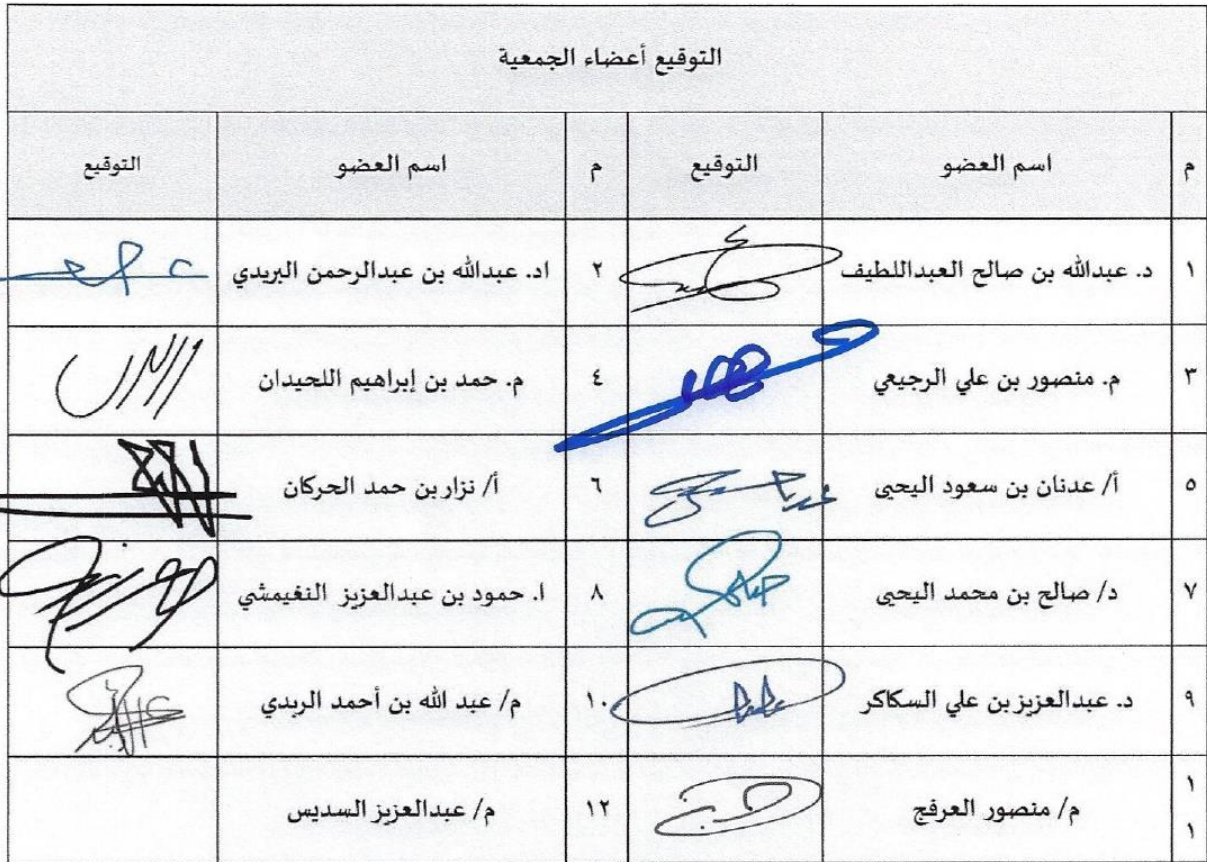 التوقيع أعضاء الجمعية
م اسم العضو التوقيع م اسم العضو التوقيع
١ د. عبدالله بن صالح العبداللطيف ٢ اد. عبدالله بن عبدالرحمن البريدي
٣ م. منصور بن علي الرجيعي ٤ م. حمد بن إبراهيم اللحيدان
٥ أ/ عدنان بن سعود اليحيى ٦ أ/ نزار بن حمد الحركان
٧ د/ صالح بن محمد اليحيى ٨ ا. حمود بن عبدالعزيز النغيمشي
٩ د. عبدالعزيز بن علي السكاكر ١٠ م/ عبد الله بن أحمد الربدي
١١ م/ منصور العرفج ١٢ م/ عبدالعزيز السديس